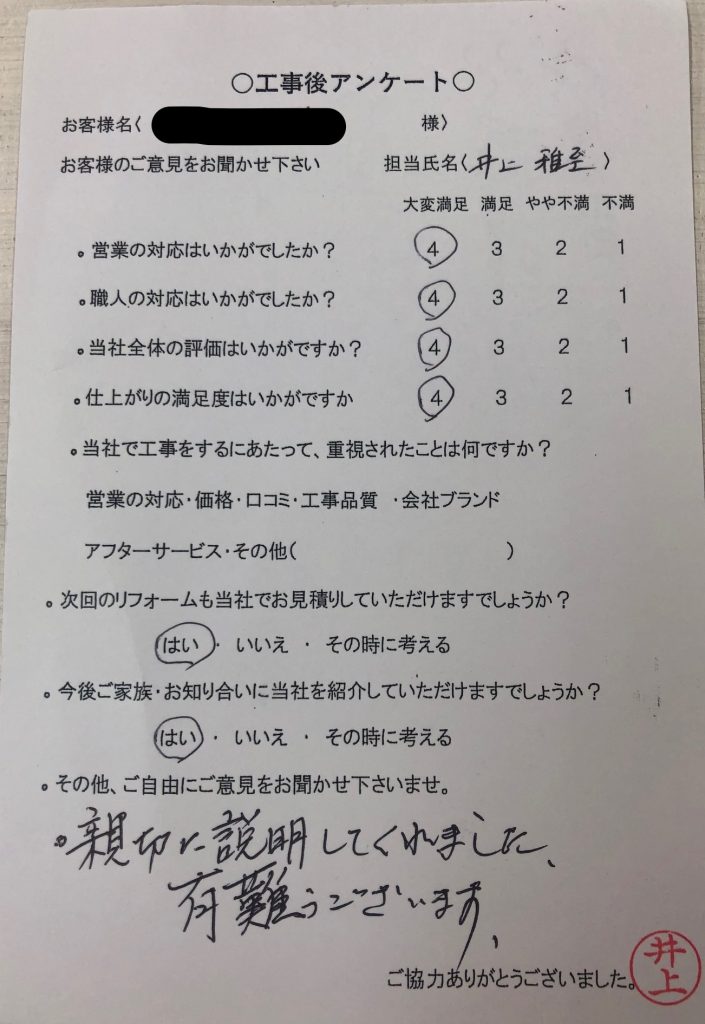 ○工事後アンケート○
お客様名〈 様〉
お客様のご意見をお聞かせ下さい 担当氏名〈井上 雅至〉
大変満足 満足 やや不満 不満
。営業の対応はいかがでしたか? 4 3 2 1
。職人の対応はいかがでしたか? 4 3 2 1
。当社全体の評価はいかがですか? 4 3 2 1
。仕上がりの満足度はいかがですか 4 3 2 1
。当社で工事をするにあたって、重視されたことは何ですか?
営業の対応・価格・口コミ・工事品質 ・会社ブランド
アフターサービス・その他( )
。次回のリフォームも当社でお見積りしていただけますでしょうか?
はい・ いいえ ・ その時に考える
。今後ご家族・お知り合いに当社を紹介していただけますでしょうか?
はい ・ いいえ ・ その時に考える
。その他、ご自由にご意見をお聞かせ下さいませ。
。親切に説明してくれました、
有難うございます、
ご協力ありがとうございました。
井上